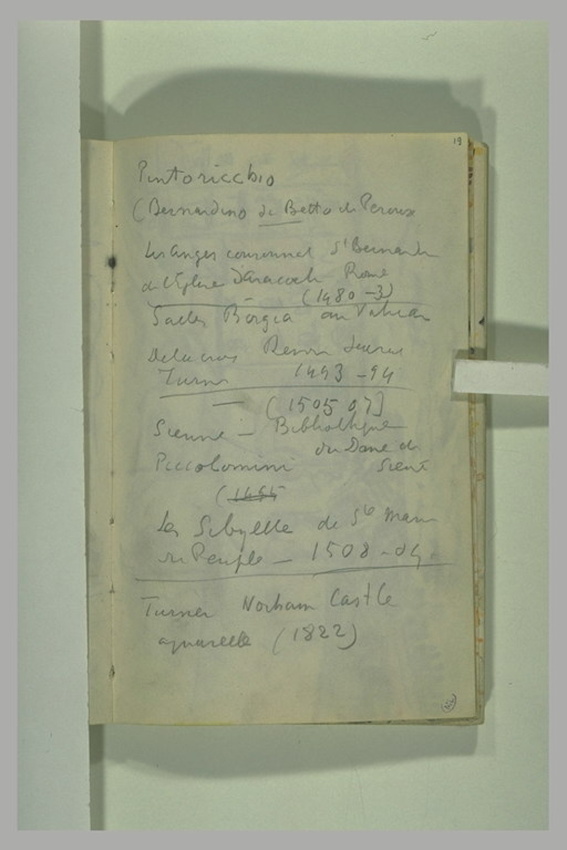 19
Pintoricchio
(Bernardino di Betto de Perouse
Les anges couronnant St Bernardin
de l'Eglise d'Aracoeli Rome
(1480-3)
Salles Borgia au Vatican
Delacroix Renoir
Turner 1493-94
— (1505 07)
Sienne — Bibliothèque
du Dome de
Piccolomini Sienne
Les Sibylle de Ste Marie
du Peuple — 1508-09.
Turner Norham Castle
aquarelle (1822)